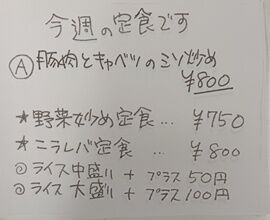 今週の定食です
Ⓐ 豚肉とキャベツのミソ炒め
¥800
★野菜炒め定食… ¥750
★ニラレバ定食… ¥800
◎ライス中盛り + プラス50円
◎ライス大盛り + プラス100円